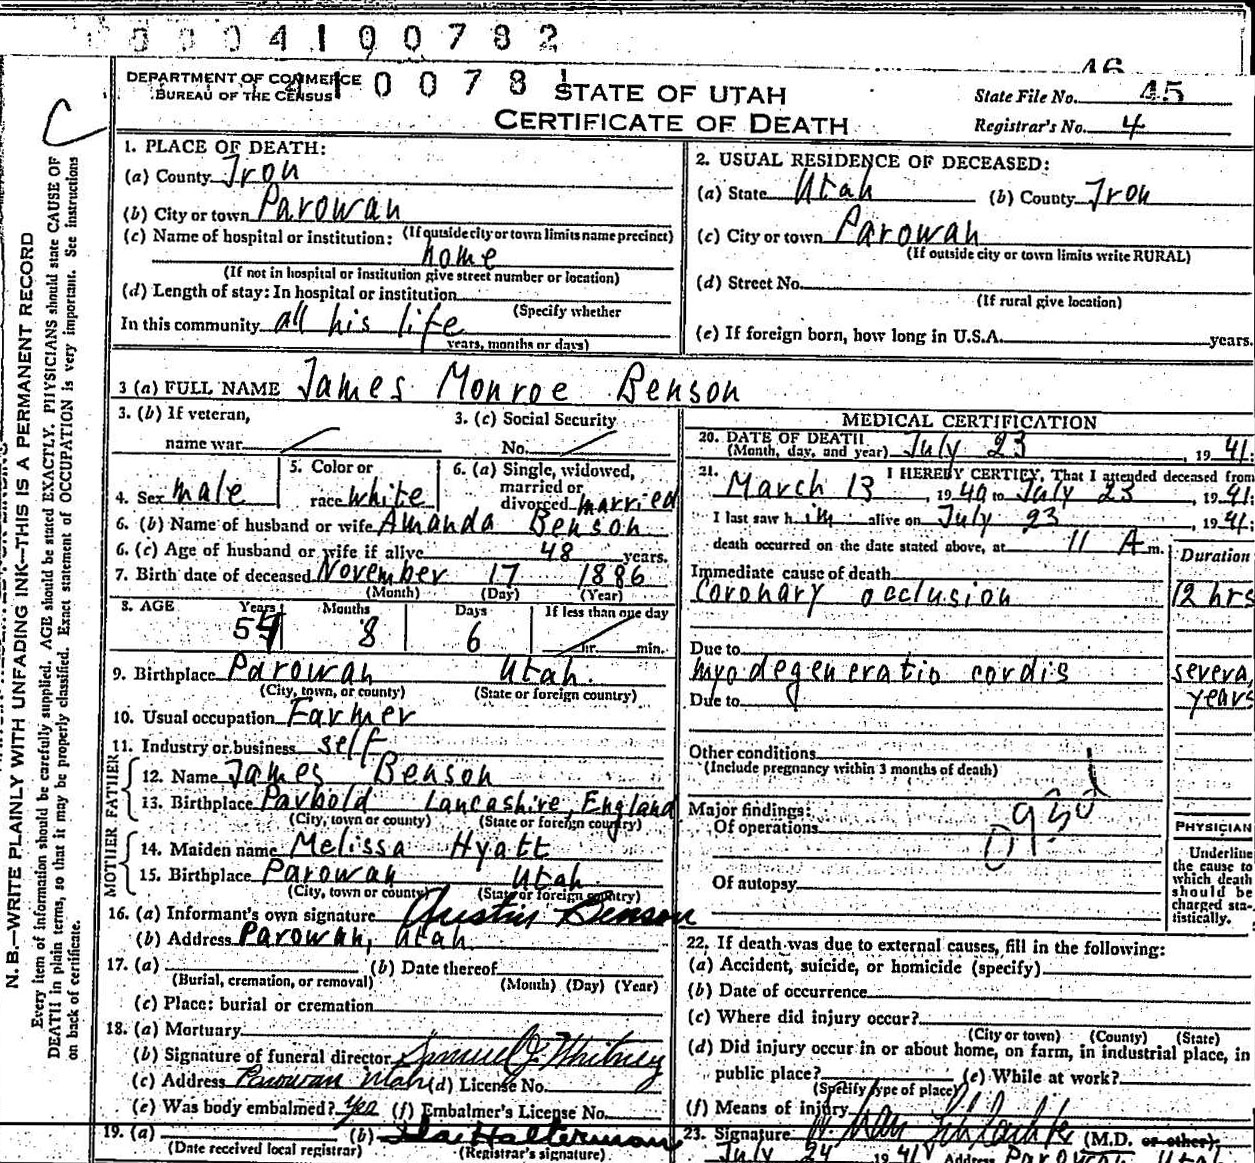 0004100782
4100781
46
DEPARTMENT OF COMMERCE
BUREAU OF THE CENSUS
STATE OF UTAH
CERTIFICATE OF DEATH
State File No. 45
Registrar's No. 4
C
N. B.—WRITE PLAINLY WITH UNFADING INK—THIS IS A PERMANENT RECORD
Every item of information should be carefully supplied. AGE should be stated EXACTLY. PHYSICIANS should state CAUSE OF
DEATH in plain terms, so that it may be properly classified. Exact statement of OCCUPATION is very important. See instructions
on back of certificate.
1. PLACE OF DEATH:
(a) County Iron
(b) City or town Parowan
(If outside city or town limits name precinct)
(c) Name of hospital or institution:
home
(If not in hospital or institution give street number or location)
(d) Length of stay: In hospital or institution
(Specify whether
In this community all his life
years, months or days)
2. USUAL RESIDENCE OF DECEASED:
(a) State Utah (b) County Iron
(c) City or town Parowan
(If outside city or town limits write RURAL)
(d) Street No.
(If rural give location)
(e) If foreign born, how long in U.S.A. years.
3 (a) FULL NAME James Monroe Benson
3. (b) If veteran,
name war
3. (c) Social Security
No.
4. Sex male
5. Color or
race white
6. (a) Single, widowed,
married or
divorced married
6. (b) Name of husband or wife Amanda Benson
6. (c) Age of husband or wife if alive 48 years.
7. Birth date of deceased November 17 1886
(Month) (Day) (Year)
8. AGE Years Months Days If less than one day
54 8 6 hr. min.
9. Birthplace Parowan Utah.
(City, town, or county) (State or foreign country)
10. Usual occupation Farmer
11. Industry or business self
FATHER
12. Name James Benson
13. Birthplace Parbold Lancashire, England
(City, town or county) (State or foreign country)
MOTHER
14. Maiden name Melissa Hyatt
15. Birthplace Parowan Utah.
(City, town or county) (State or foreign country)
16. (a) Informant's own signature Austin Benson
(b) Address Parowan, Utah.
17. (a) (b) Date thereof
(Burial, cremation, or removal) (Month) (Day) (Year)
(c) Place: burial or cremation
18. (a) Mortuary
(b) Signature of funeral director Samuel J. Whitney
(c) Address Parowan Utah (d) License No.
(e) Was body embalmed? yes (f) Embalmer's License No.
19. (a) (b) Ila Halterman
(Date received local registrar) (Registrar's signature)
MEDICAL CERTIFICATION
20. DATE OF DEATH July 23, 1941.
(Month, day, and year)
21. I HEREBY CERTIFY, That I attended deceased from
March 13, 1940 to July 23, 1941.
I last saw him alive on July 23, 1941.
death occurred on the date stated above, at 11 A m.
Duration
Immediate cause of death
coronary occlusion 12 hrs
Due to
myodegeneratio cordis several
Due to years
Other conditions
(Include pregnancy within 3 months of death)
Major findings:
Of operations
Of autopsy
PHYSICIAN
Underline
the cause to
which death
should be
charged sta-
tistically.
22. If death was due to external causes, fill in the following:
(a) Accident, suicide, or homicide (specify)
(b) Date of occurrence
(c) Where did injury occur?
(City or town) (County) (State)
(d) Did injury occur in or about home, on farm, in industrial place, in
public place? (e) While at work?
(Specify type of place)
(f) Means of injury
23. Signature (M.D. or other)
July 24 1941 Address Parowan Utah